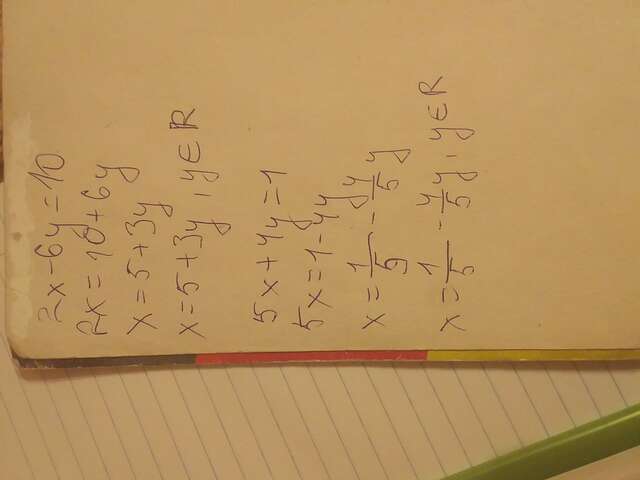 2x-6y=10
2x=10+6y
x=5+3y
x=5+3y, y∈R
5x+4y=1
5x=1-4y
x=1/5-4/5y
x=1/5-4/5y, y∈R